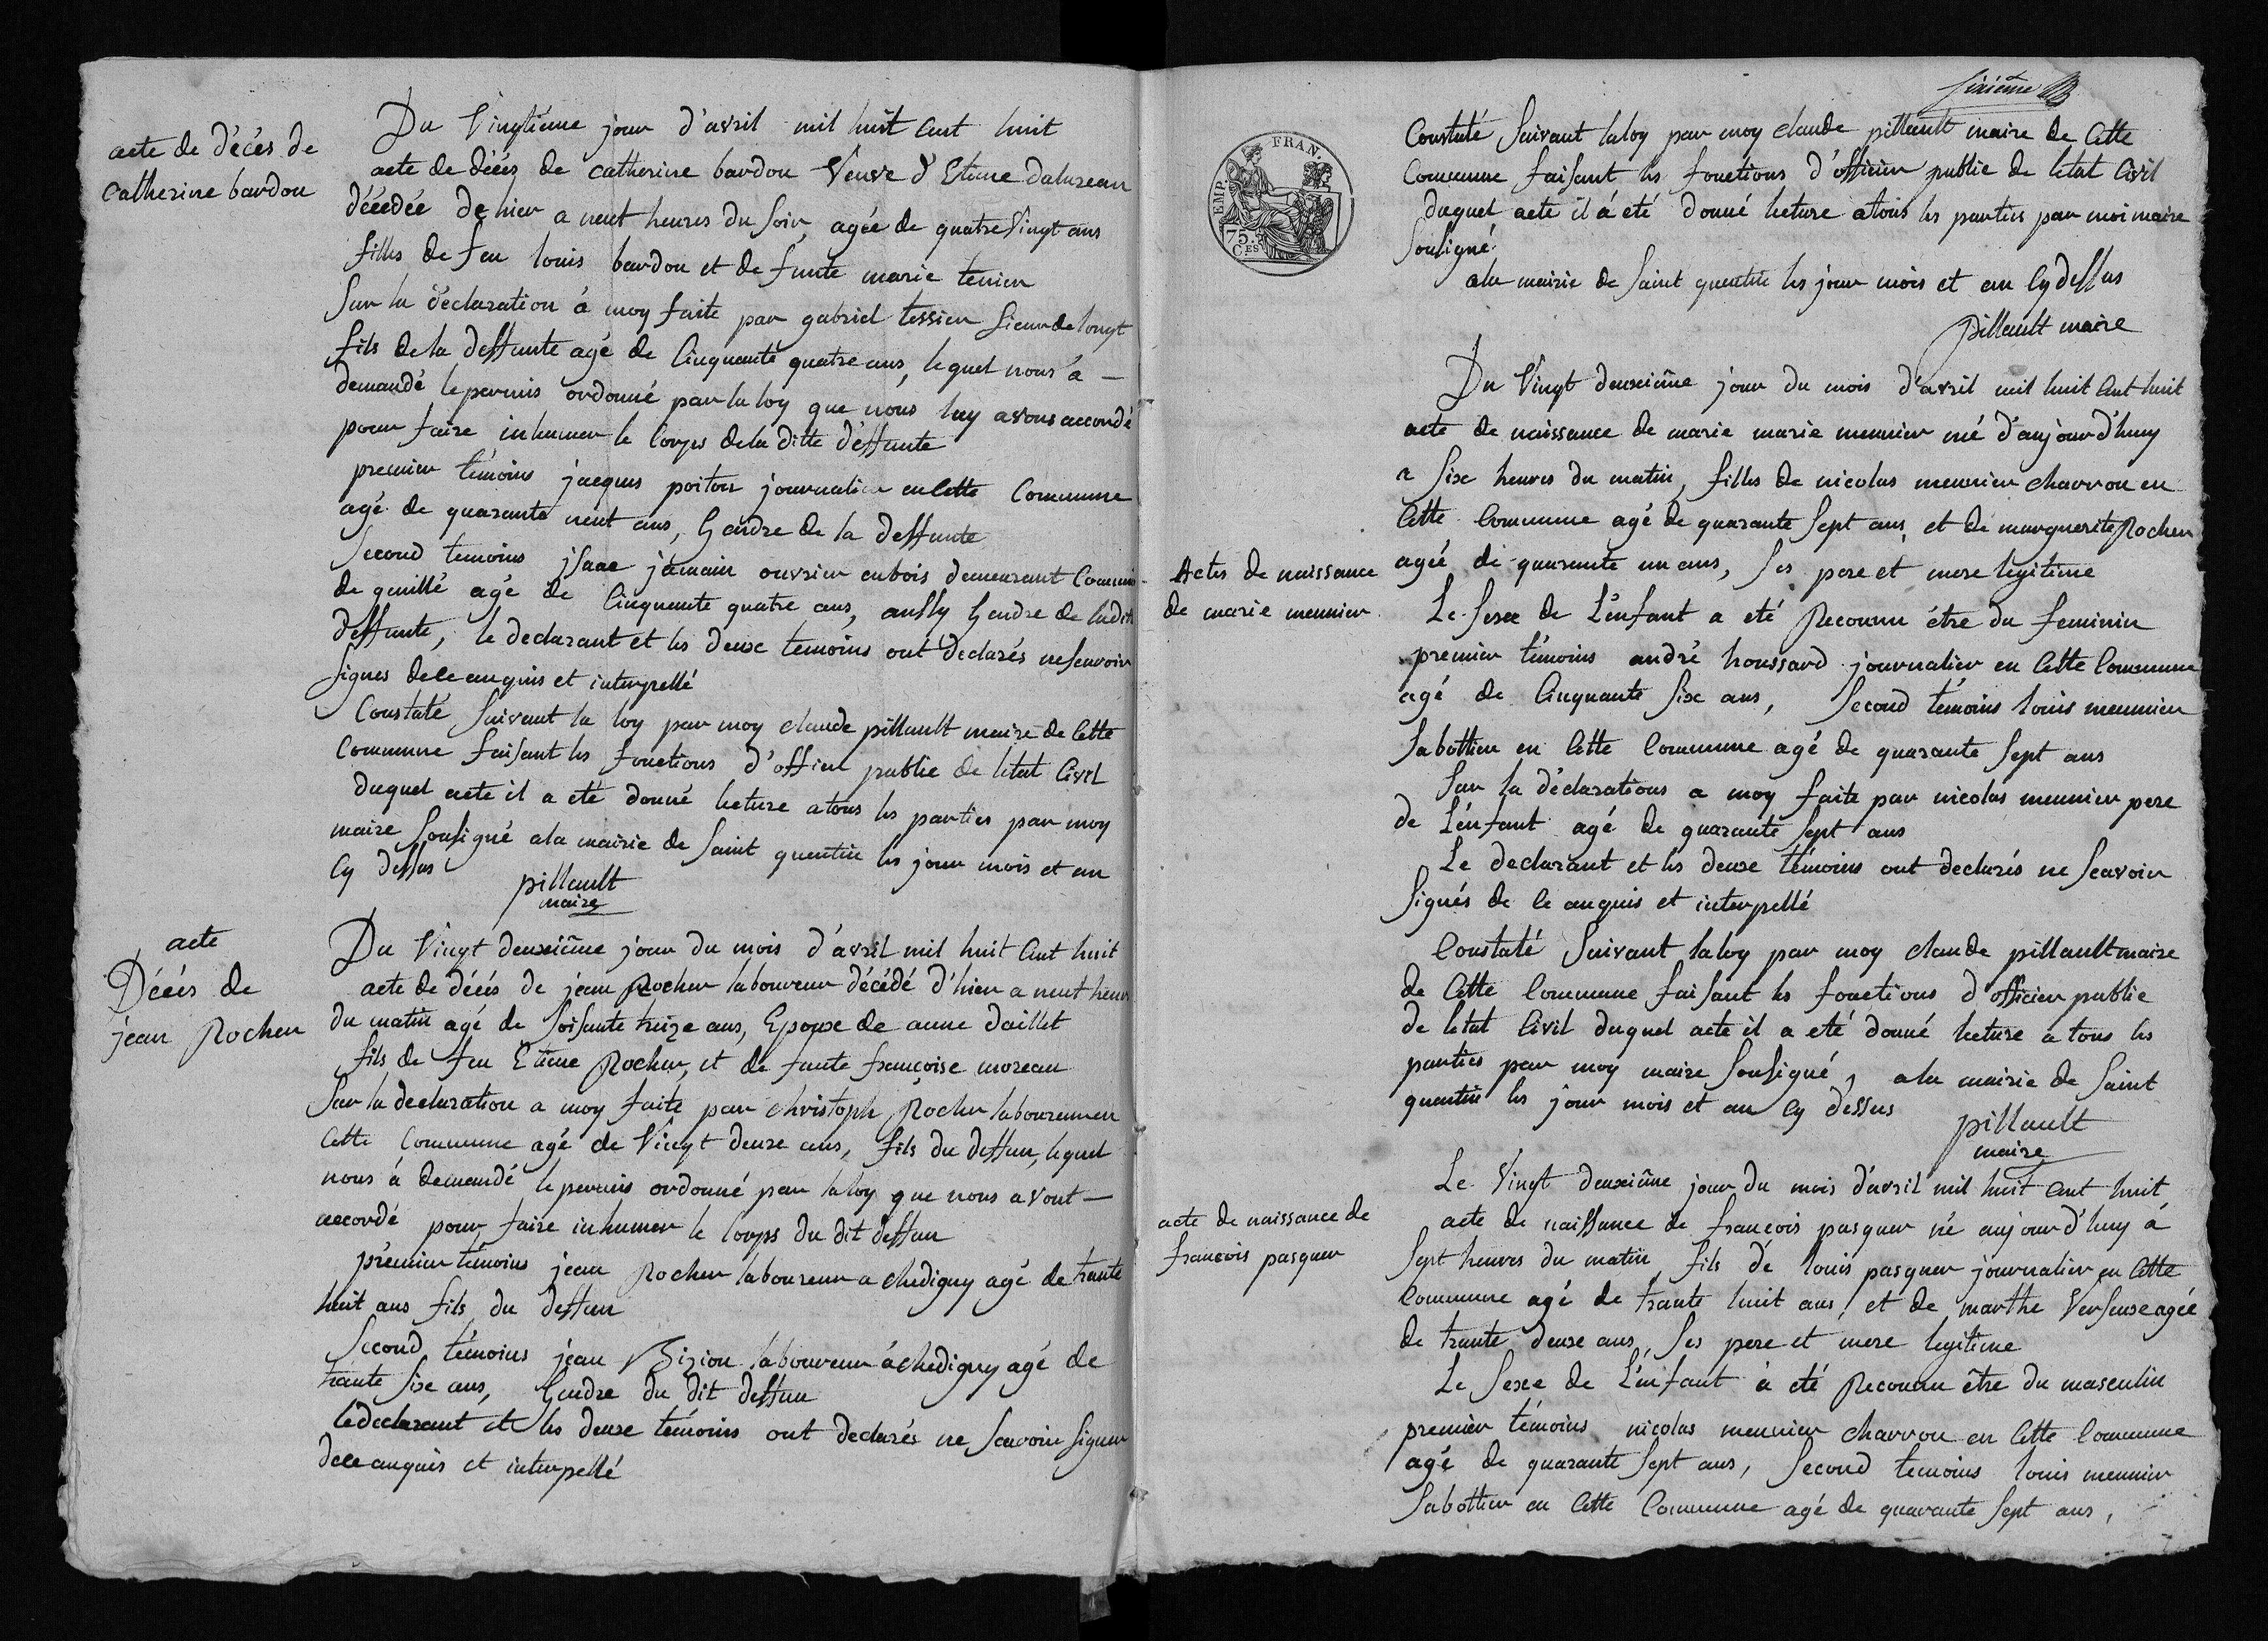 acte de décès de
catherine bardou
Du Vingtiéme jour d'avril mil huit Cent huit
acte de décés de catherine bardou Veuve d'Etiene daluzeau
décédée de hier a neuf heures du soir, agée de quatre Vingt ans
filles de feu louis bardou et de funte marie tenier
Sur la déclaration à moy faite par gabriel tessier
fils de la deffunte agé de Cinquante quatre ans, lequel nous à
demandé le permis ordonné par la loy que nous luy avons accordé
pour faire inhumer le Corps de la ditte déffunte
premier témoins jacques poitou journalier en Cette Commune
agé de quarante neuf ans, Gendre de la deffunte
Second temoins jsaac jamain ouvrier en bois demeurant Commune
de genillé agé de Cinquante quatre ans, aussy Gendre de ladite
deffunte, le declarant et les deux temoins ont declarés ne scavoir
signes de ce anquis et interpellé
Constaté Suivant la loy par moy claude pillault maire de Cette
Commune faisant les fonctions d'officie public de letat Civil
duquel acte il a eté donné lecture atous les parties par moy
maire Sousigné ala mairie de Saint quentin les jour mois et an
Cy dessus
pillault
maire
acte
Décés de
jean Rocher
Du Vingt deuxiême jour du mois d'avril mil huit Cent huit
acte de décés de jean Rocher laboureur décédé d'hier a neuf heures
du matin agé de Soisante treize ans, Epoux de anne daillet
fils de feu Etiene Rocher, et de funte françoise moreau
Sur la declaration a moy faite par christoph Rocher laboureur en
Cette Commune agé de Vingt deux ans, fils du deffun, lequel
nous à demandé le permis ordonné par la loy que nous avont
accordé pour faire inhumer le Corps du dit deffun
prémier témoins jean Rocher laboureur a chedigny agé de trante
huit ans fils du deffun
Second témoins jean Bizion laboureur à chedigny agé de
trante six ans, Gendre du dit deffun
le declarant et les deux témoins ont declarés ne Scavoir signer
de ce anquis et interpellé
sixiême
EMP. FRAN.
75. CES
Constaté Suivant la loy par moy claude pillault maire de Cette
Commune faisant les fonctions d'officier public de letat Civil
duquel acte il à eté donné lecture atous les parties par moi maire
Sousigné
ala mairie de Saint quentin les jour mois et an Cy dessus
pillault maire
Actes de naissance
de marie meunier
Du Vingt deuxiême jour du mois d'avril mil huit Cent huit
acte de naissance de marie marie meunier né d'aujourd'huy
a six heures du matin, filles de nicolas meunier charron en
Cette Commune agé de quarante Sept ans, et de marguerite Rocher
agée de quarante un ans, Ses pere et mere legitime
Le Sexe de L'enfant a eté Reconnu étre du feminin
premier témoins andré houssard journalier en Cette Commune
agé de Cinquante Six ans, Second témoins louis meunier
Sabottier en Cette Commune agé de quarante Sept ans
Sur la déclarations a moy faite par nicolas meunier pere
de L'enfant agé de quarante Sept ans
Le declarant et les deux témoins ont declarés ne Scavoir
Signés de Ce anquis et interpellé
Constaté Suivant la loy par moy claude pillault maire
de Cette Commune faisant les fonctions d'officier public
de letat Civil duquel acte il a eté donné lecture a tous les
parties par moy maire Sousigné, ala mairie de Saint
quentin les jour mois et an Cy dessus
pillault
maire
acte de naissance de
francois pasquer
Le Vingt deuxiême jour du mois d'avril mil huit Cent huit
acte de naissance de francois pasquer né aujourd'huy à
Sept heures du matin, fils de louis pasquer journalier en Cette
Commune agé de trante huit ans, et de marthe Verseuse agée
de trante deux ans, Ses pere et mere legitime
Le Sexe de L'enfant à eté Reconnu être du masculin
premier témoins nicolas meunier charron en Cette Commune
agé de quarante Sept ans, Second temoins louis meunier
Sabottier en Cette Commune agé de quarante Sept ans,